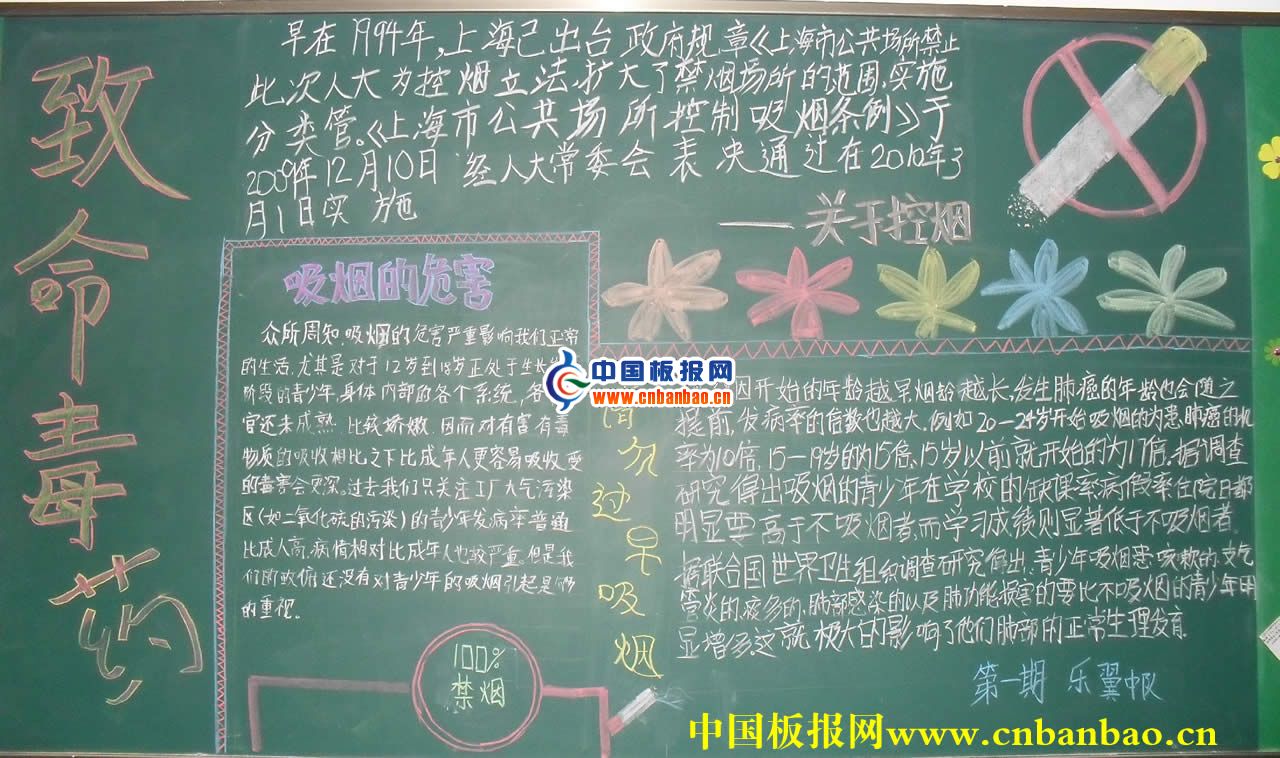 致命毒药
早在1994年,上海已出台政府规章《上海市公共场所禁止
此次人大为控烟立法,扩大了禁烟场所的范围,实施
分类管。《上海市公共场所控制吸烟条例》于
2009年12月10日 经人大常委会表决通过在2010年3
月1日实施
——关于控烟
吸烟的危害
众所周知,吸烟的危害严重影响我们正常
的生活,尤其是对于12岁到18岁正处于生长
阶段的青少年,身体内部的各个系统,各
官还未成熟 比较娇嫩 因而对有害有毒
物质的吸收相比之下比成年人更容易吸收,受
的毒害会更深。过去我们只关注工厂大气污染
区(如二氧化硫的污染)的青少年发病率普遍
比成人高,病情相对比成年人也较严重。但是我
们的政府还没有对青少年的吸烟引起足够
的重视。
100%
禁烟
请勿过早吸烟
因开始的年龄越早烟龄越长,发生肺癌的年龄也会随之
提前,发病率的倍数也越大,例如20-24岁开始吸烟的为患肺癌的机
率为10倍,15-19岁的为15倍,15岁以前就开始的为17倍,据调查
研究得出吸烟的青少年在学校的缺课率病假率住院日都
明显要高于不吸烟者,而学习成绩则显著低于不吸烟者。
据联合国世界卫生组织调查研究得出,青少年吸烟患咳嗽的,支气
管炎的,痰多的,肺部感染的以及肺功能损害的要比不吸烟的青少年明
显增多,这就极大的影响了他们肺部的正常生理发育.
第一期 乐翼中队
中国板报网
www.cnbanbao.cn
中国板报网www.cnbanbao.cn